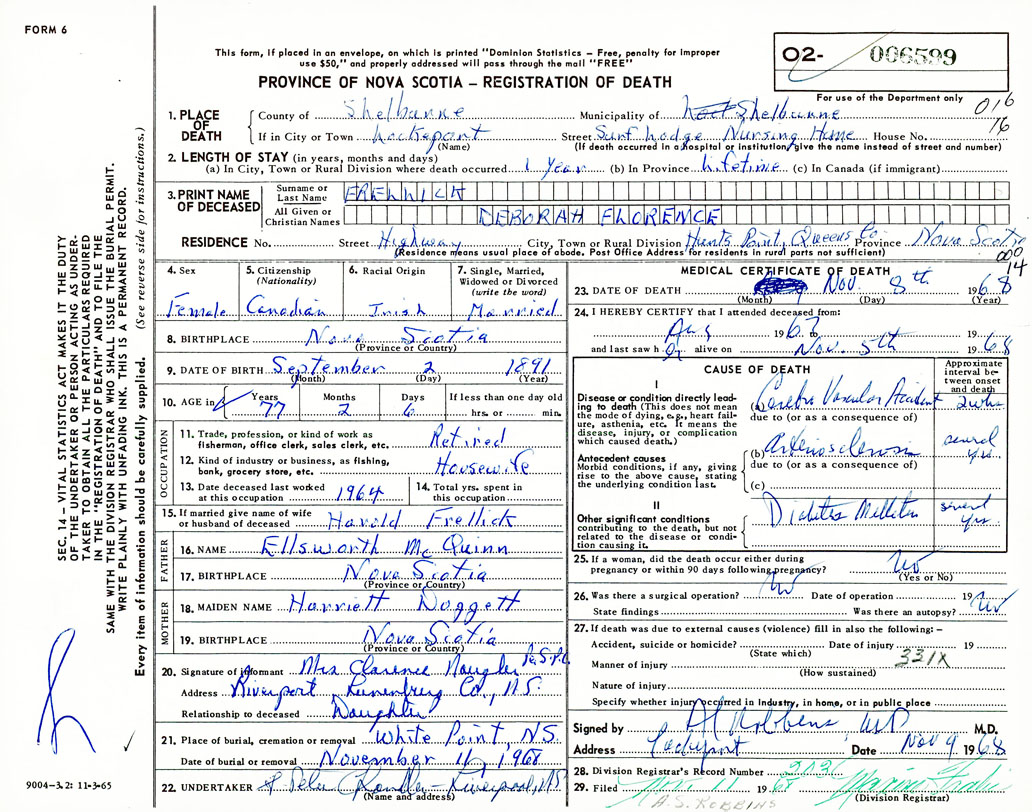 FORM 6
This form, if placed in an envelope, on which is printed "Dominion Statistics – Free, penalty for improper
use $50," and properly addressed will pass through the mail "FREE"
PROVINCE OF NOVA SCOTIA – REGISTRATION OF DEATH
02- 006599
For use of the Department only
016
16
1. PLACE OF DEATH
County of Shelburne Municipality of Shelburne
If in City or Town Lockeport Street Surf Lodge Nursing Home House No.
(Name) (If death occurred in a hospital or institution, give the name instead of street and number)
2. LENGTH OF STAY (in years, months and days)
(a) In City, Town or Rural Division where death occurred 1 Year (b) In Province Lifetime (c) In Canada (if immigrant)
3. PRINT NAME OF DECEASED
Surname or Last Name FRELLICK
All Given or Christian Names DEBORAH FLORENCE
RESIDENCE No. Street Highway City, Town or Rural Division Hunts Point, Queens Co. Province Nova Scotia
(Residence means usual place of abode. Post Office Address for residents in rural parts not sufficient)
000
14
4. Sex
Female
5. Citizenship
(Nationality)
Canadian
6. Racial Origin
Irish
7. Single, Married,
Widowed or Divorced
(write the word)
Married
8. BIRTHPLACE Nova Scotia
(Province or Country)
9. DATE OF BIRTH September 2 1891
(Month) (Day) (Year)
10. AGE in Years Months Days If less than one day old
77 2 6 hrs. or min.
OCCUPATION
11. Trade, profession, or kind of work as
fisherman, office clerk, sales clerk, etc. Retired
12. Kind of industry or business, as fishing,
bank, grocery store, etc. Housewife
13. Date deceased last worked
at this occupation 1964
14. Total yrs. spent in
this occupation
15. If married give name of wife
or husband of deceased Harold Frellick
FATHER
16. NAME Ellsworth McQuinn
17. BIRTHPLACE Nova Scotia
(Province or Country)
MOTHER
18. MAIDEN NAME Harriett Doggett
19. BIRTHPLACE Nova Scotia
(Province or Country)
20. Signature of informant Mrs Clarence Naugler
Address Riverport Lunenburg Co., N.S.
Relationship to deceased Daughter
21. Place of burial, cremation or removal White Point, N.S.
Date of burial or removal November 11, 1968
22. UNDERTAKER Liverpool, N.S.
(Name and address)
MEDICAL CERTIFICATE OF DEATH
23. DATE OF DEATH Nov. 8th 1968
(Month) (Day) (Year)
24. I HEREBY CERTIFY that I attended deceased from:
Aug 1967 19
and last saw h er alive on Nov. 5th 1968
CAUSE OF DEATH
Approximate
interval be-
tween onset
and death
I
Disease or condition directly lead-
ing to death (This does not mean
the mode of dying, e.g., heart fail-
ure, asthenia, etc. It means the
disease, injury, or complication
which caused death.)
(a) Cerebro Vascular Accident 2 wks
due to (or as a consequence of)
Antecedent causes
Morbid conditions, if any, giving
rise to the above cause, stating
the underlying condition last.
(b) Arteriosclerosis several yrs.
due to (or as a consequence of)
(c)
II
Other significant conditions
contributing to the death, but not
related to the disease or condi-
tion causing it.
Diabetes Mellitus several yrs
25. If a woman, did the death occur either during
pregnancy or within 90 days following pregnancy? No
(Yes or No)
26. Was there a surgical operation? No Date of operation 19
State findings Was there an autopsy? No
27. If death was due to external causes (violence) fill in also the following: –
Accident, suicide or homicide? Date of injury 19
(State which) 331X
Manner of injury
(How sustained)
Nature of injury
Specify whether injury occurred in Industry, in home, or in public place
Signed by Robbins, MD M.D.
Address Lockeport Date Nov 9 1968
28. Division Registrar's Record Number 202
29. Filed Nov. 11 1968
(Division Registrar)
A.S. ROBBINS
SEC. 14 – VITAL STATISTICS ACT MAKES IT THE DUTY
OF THE UNDERTAKER OR PERSON ACTING AS UNDER-
TAKER TO OBTAIN ALL THE PARTICULARS REQUIRED
IN THE "REGISTRATION OF DEATH" AND TO FILE THE
SAME WITH THE DIVISION REGISTRAR WHO SHALL ISSUE THE BURIAL PERMIT.
WRITE PLAINLY WITH UNFADING INK. THIS IS A PERMANENT RECORD.
Every item of information should be carefully supplied. (See reverse side for instructions.)
9004-3.2: 11-3-65